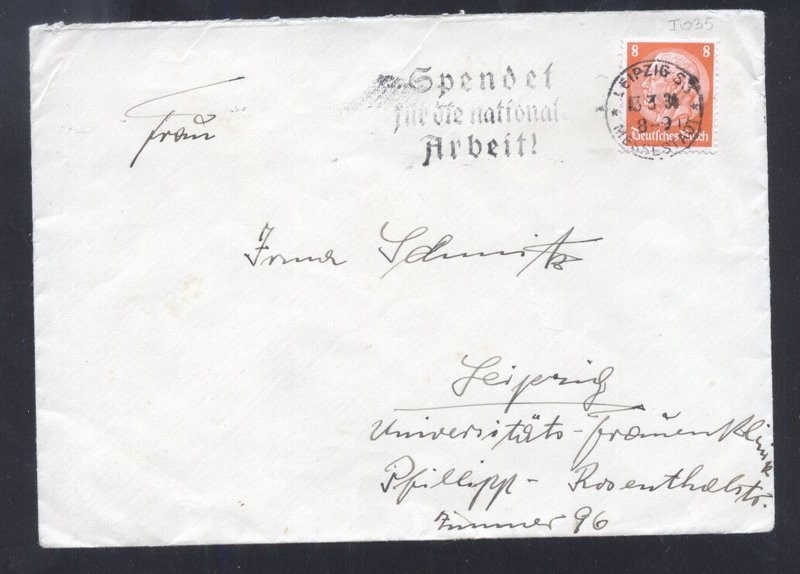 I035
Spendet
für die nationale
Arbeit!
8 8
Deutsches Reich
LEIPZIG
8-9
MESSESTADT
Frau
Irma Schmitz
Leipzig
Universitäts-Frauenklinik
Phillipp-Rosenthalstr.
Zimmer 96